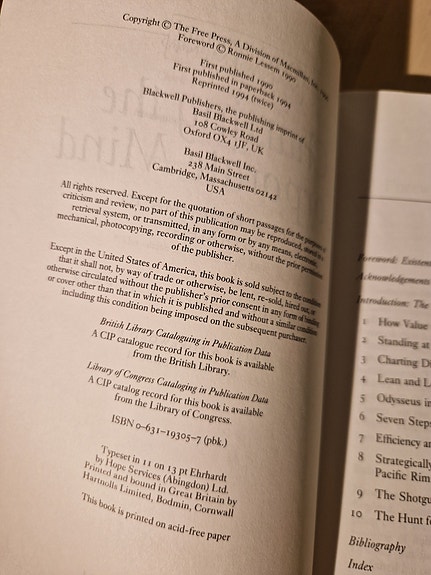 Copyright © The Free Press, A Division of Macmillan, Inc.
Foreword © Ronnie Lessem 1990
First published 1990
First published in paperback 1994
Reprinted 1994 (twice)
Blackwell Publishers, the publishing imprint of
Basil Blackwell Ltd
108 Cowley Road
Oxford OX4 1JF, UK
Basil Blackwell Inc.
238 Main Street
Cambridge, Massachusetts 02142
USA
All rights reserved. Except for the quotation of short passages for the purposes of
criticism and review, no part of this publication may be reproduced, stored in a
retrieval system, or transmitted, in any form or by any means, electronic,
mechanical, photocopying, recording or otherwise, without the prior permission
of the publisher.
Except in the United States of America, this book is sold subject to the condition
that it shall not, by way of trade or otherwise, be lent, re-sold, hired out, or
otherwise circulated without the publisher's prior consent in any form of binding
or cover other than that in which it is published and without a similar condition
including this condition being imposed on the subsequent purchaser.
British Library Cataloguing in Publication Data
A CIP catalogue record for this book is available
from the British Library.
Library of Congress Cataloging in Publication Data
A CIP catalog record for this book is available
from the Library of Congress.
ISBN 0–631–19305–7 (pbk.)
Typeset in 11 on 13 pt Ehrhardt
by Hope Services (Abingdon) Ltd.
Printed and bound in Great Britain by
Hartnolls Limited, Bodmin, Cornwall
This book is printed on acid-free paper
Foreword: Existen
Acknowledgements
Introduction: The
1 How Value
2 Standing at
3 Charting Di
4 Lean and L
5 Odysseus in
6 Seven Steps
7 Efficiency an
8 Strategically
Pacific Rim
9 The Shotgu
10 The Hunt fo
Bibliography
Index